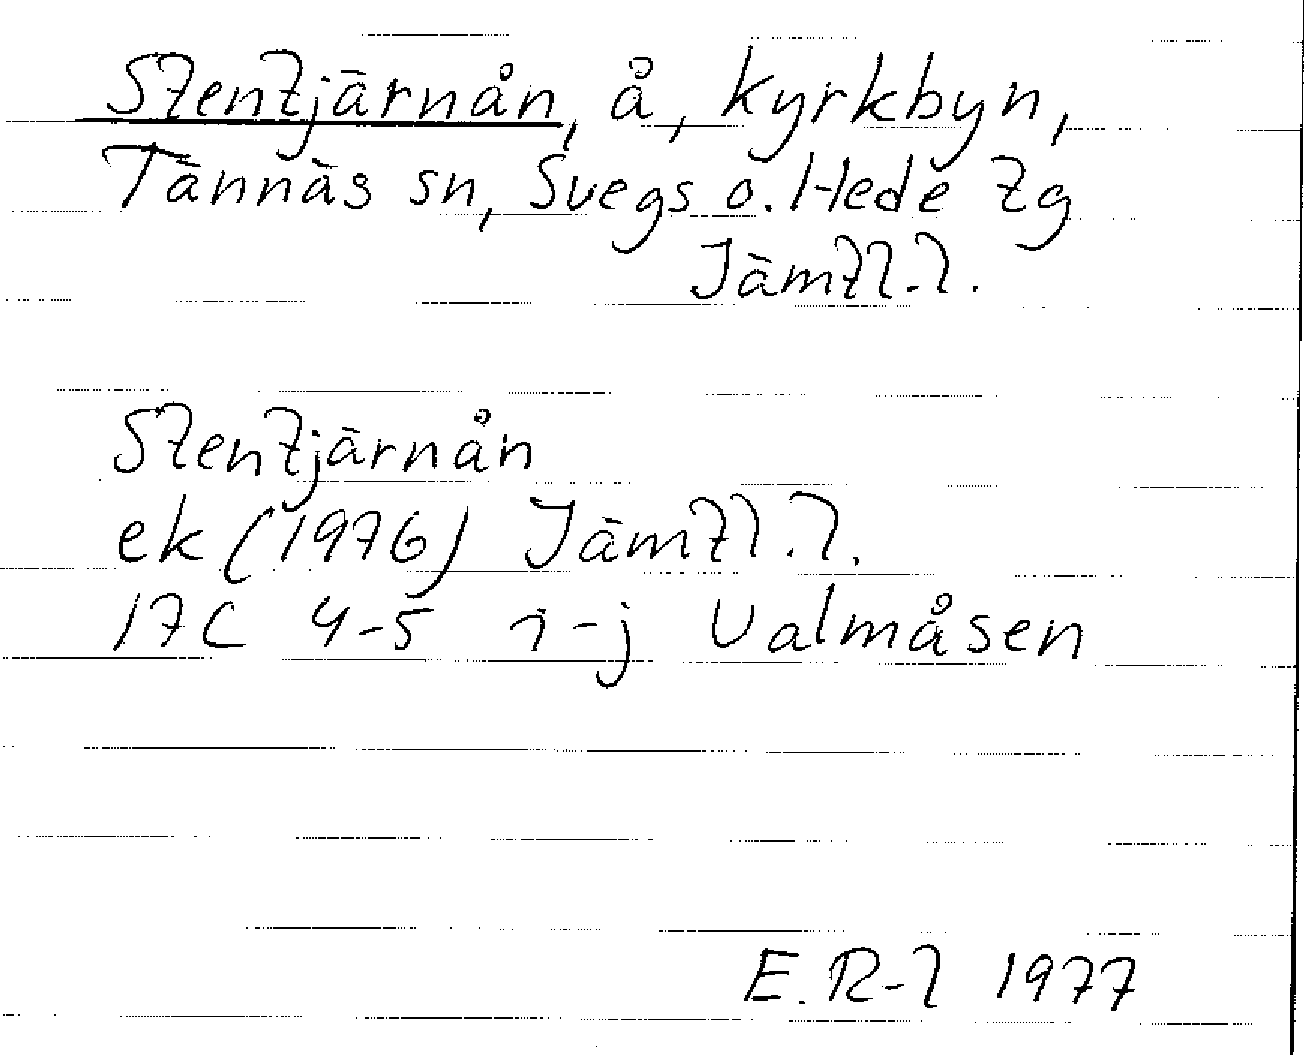 Stentjärnån, å, kyrkbyn,
Tännäs sn, Svegs o. Hede tg
Jämtl.l.
Stentjärnån
ek (1976) Jämtl.l.
17C 4-5 i-j Valmåsen
E.R-l 1977